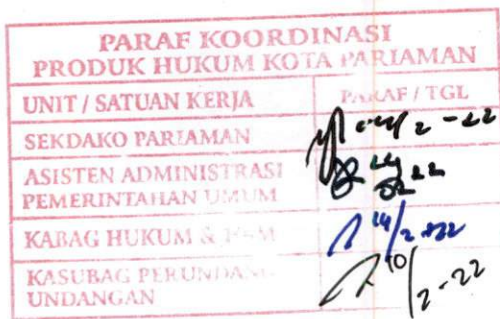 PARAF KOORDINASI
PRODUK HUKUM KOTA PARIAMAN
UNIT / SATUAN KERJA PARAF / TGL
SEKDAKO PARIAMAN 2-22
ASISTEN ADMINISTRASI
PEMERINTAHAN UMUM
KABAG HUKUM & 14/2-22
KASUBAG PERUNDANG-
UNDANGAN 10/2-22